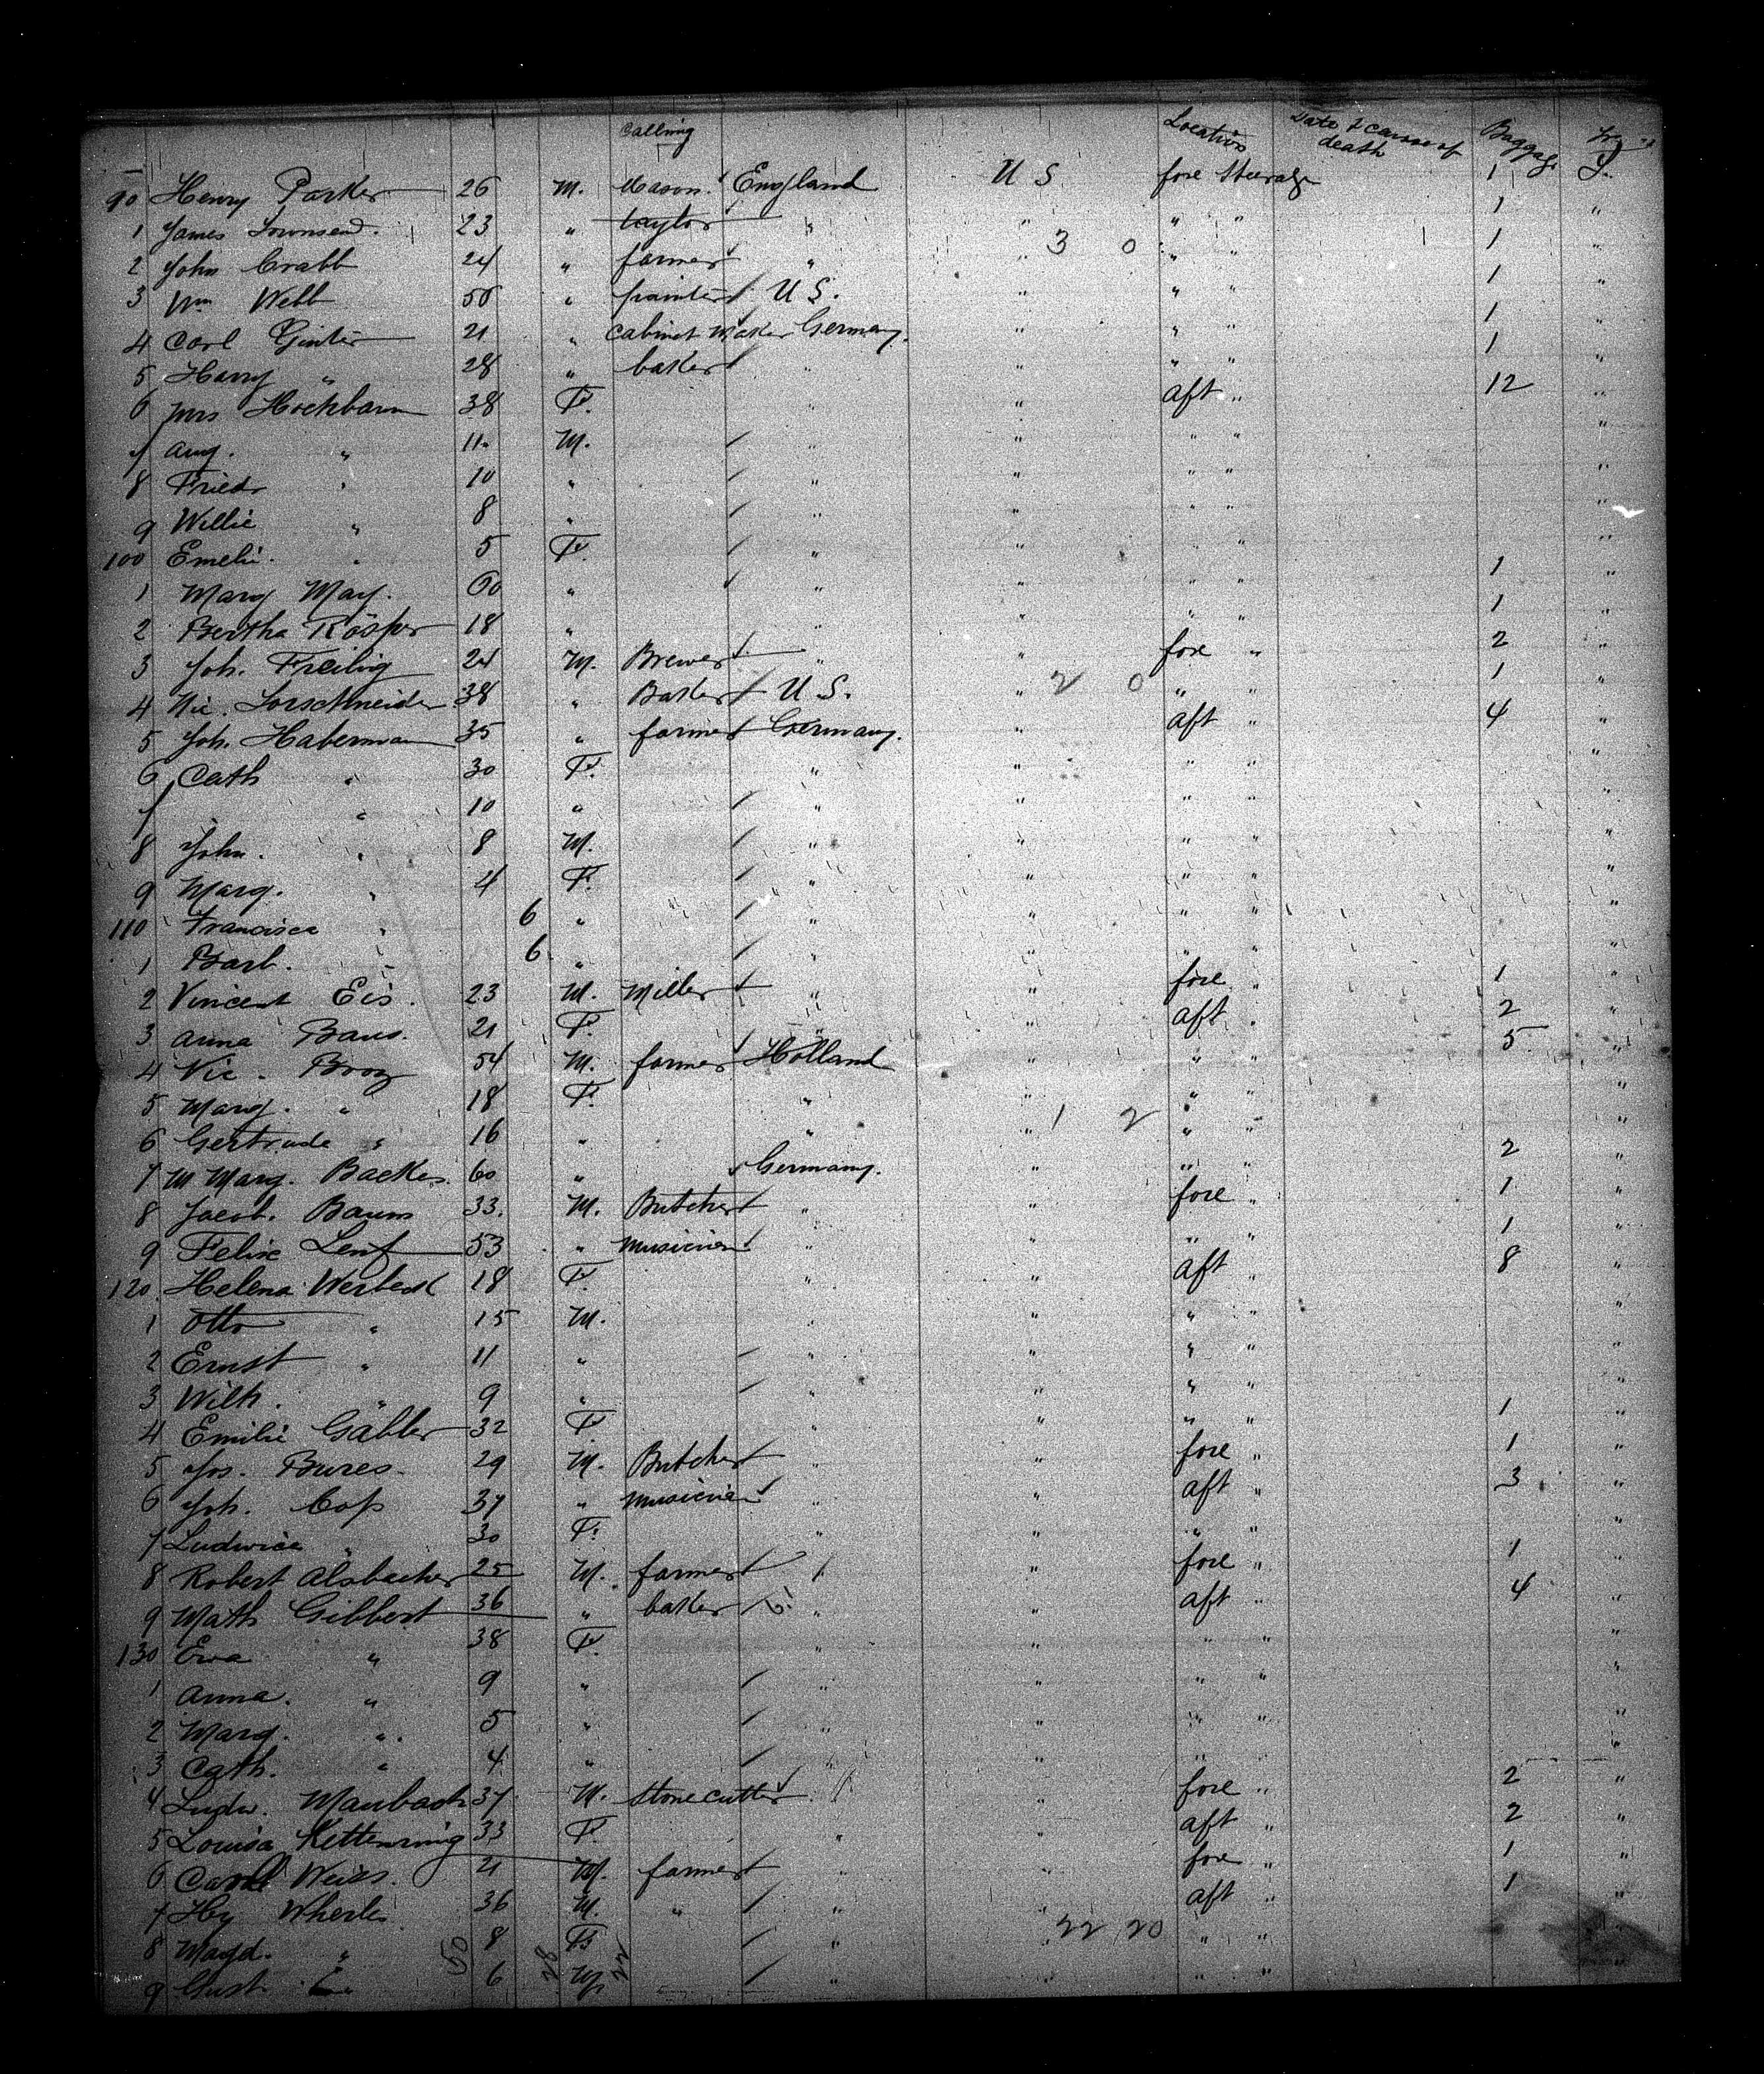 Calling Location Date & cause of death Baggage
90 Henry Parker 26 M. Mason England U S fore Steerage 1
1 James Townsend. 23 " taylor " " " " 1 "
2 John Crabb 24 " farmer " " 3 0 " " 1 "
3 Wm Webb 50 " painter U S. " " " 1
4 Carl Ginter 21 " Cabinet Maker Germany. " " " 1
5 Harry " 28 " baker " " " " 1 "
6 Mrs Hochbaum 38 F. " " aft " 12 "
7 Aug. " 11 M. " " " " "
8 Friedr " 10 " " " " " "
9 Willie " 8 " " " " " "
100 Emelie. " 5 F. " " " " "
1 Marg May. 60 " " " " " 1 "
2 Bertha Rösper 18 " " " " " 1 "
3 Joh. Freibig 24 M. Brewer " " fore " 2 "
4 Nic. Lorschneider 38 " Baker U. S. " 2 0 " " 1 "
5 Joh. Haberman 35 " farmer Germany. " aft " 4 "
6 Cath " 30 F. " " " " "
7 " 10 " " " " " "
8 John. " 8 M. " " " " "
9 Marg. " 4 F. " " " " "
110 Francisca " 6 " " " " " "
1 Barb. " 6 " " " " " "
2 Vincent Eis. 23 M. Miller " " fore " 1 "
3 Anna Baus. 21 F. " " aft " 2 "
4 Nic. Brog 54 M. farmer Holland " " " 5 "
5 Marg. " 18 F. " " " " "
6 Gertrude " 16 " " " 1 2 " " "
7 M Marg. Backes. 60 " Germany. " " " 2 "
8 Jacob. Baum 33. M. Butcher " " fore " 1 "
9 Felix Lenf 53 " Musician " " " " 1 "
120 Helena Werbeck 18 F. " " aft " 8 "
1 Otto " 15 M. " " " " "
2 Ernst " 11 " " " " " "
3 Wilh. " 9 " " " " " "
4 Emilie Gäbler 32 F. " " " " 1 "
5 Jos. Bures. 29 M. Butcher " " fore " 1 "
6 Joh. Cop 37 " Musician " " aft " 3 "
7 Ludwica " 30 F. " " " " "
8 Robert Alsbacher 25 M. farmer " " fore " 1 "
9 Math Gibbert 36 " baker " " aft " 4 "
130 Eva " 38 F. " " " " "
1 Anna. " 9 " " " " " "
2 Marg. " 5 " " " " " "
3 Cath. " 4 " " " " " "
4 Ludw. Maubach 37 M. Stonecutter " " fore " 2 "
5 Louisa Kettenring 33 F. " " aft " 2 "
6 Carl Weiss. 21 M. farmer " " fore " 1 "
7 Hy Wherle 36 M. " " " aft " 1 "
8 Magd. " 8 F. " " 22 20 " " "
9 Gust " 6 M. " " " " "
50 28 22